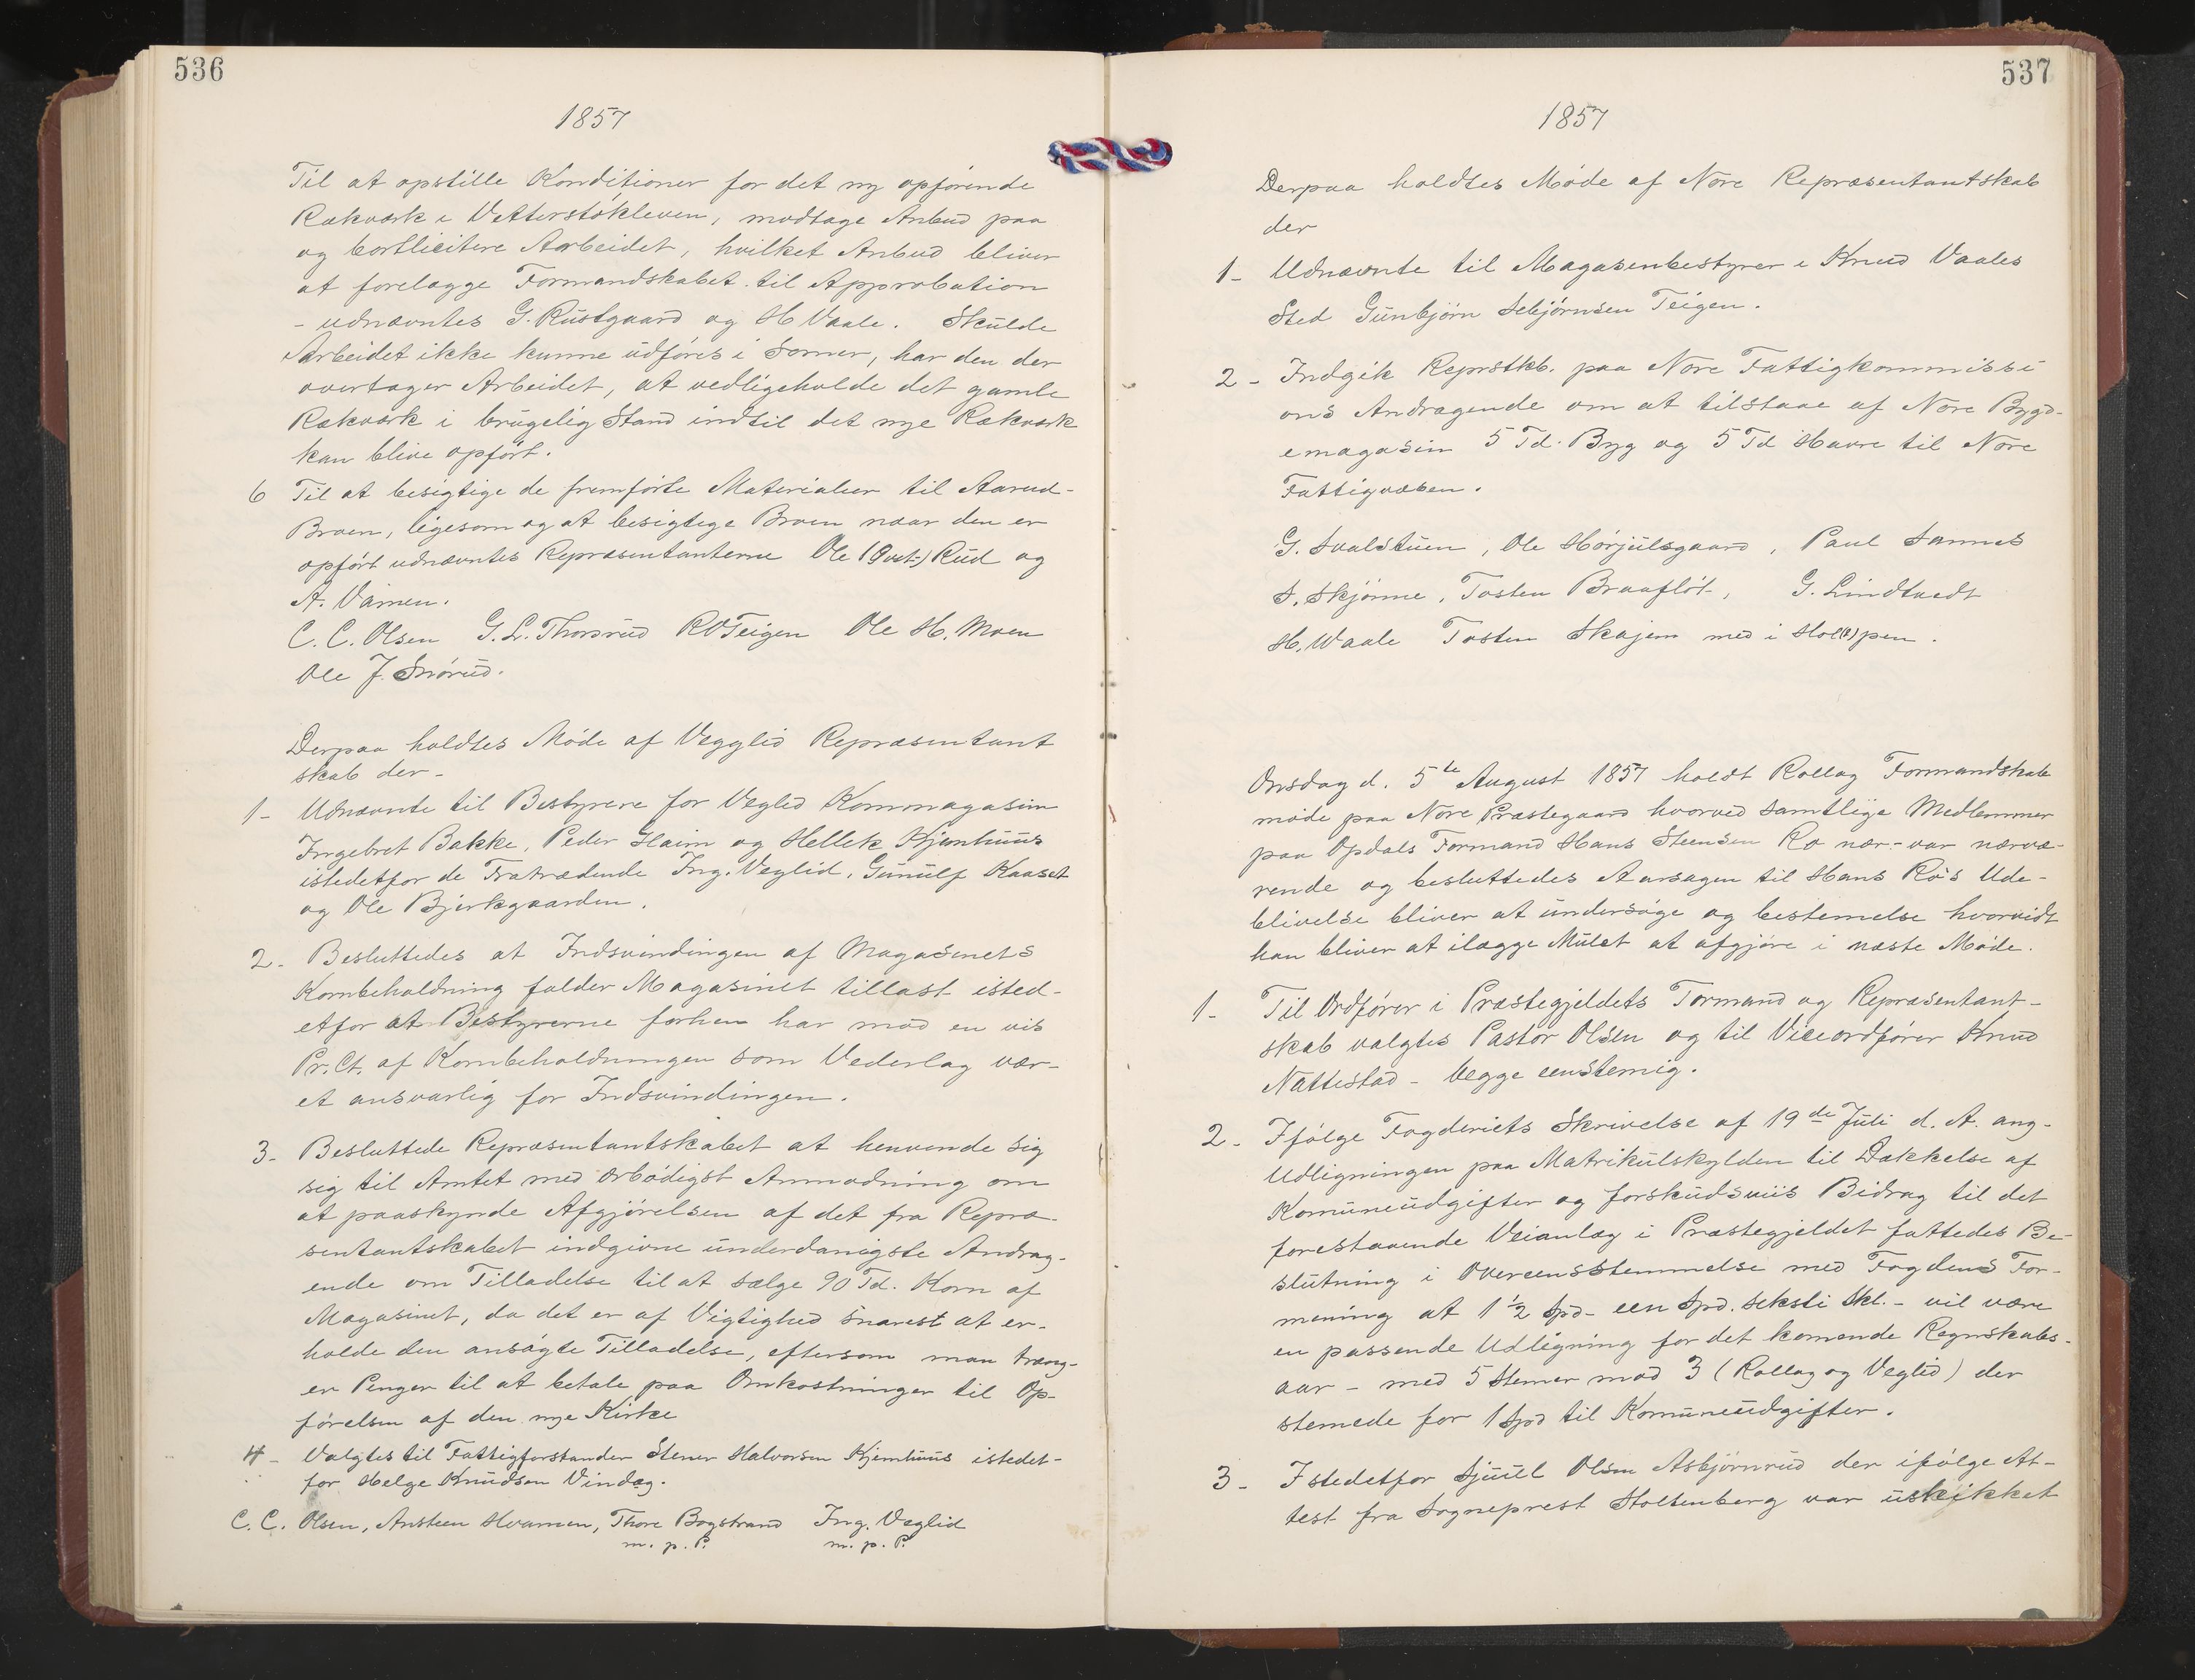 536
1857
Til at opstille Konditioner for det ny opførende
Rækværk i Vetterstøkleven, modtage Anbud paa
og bortlicitere Aarbeidet, hvilket Anbud bliver
at forelægge Formandskabet til Approbation
- udnævntes G. Rustgaard og H Vaale. Skulde
Arbeidet ikke kunne udføres i Somer, har den der
overtager Arbeidet, at vedligeholde det gamle
Rækværk i brugelig Stand indtil det nye Rækværk
kan blive opført.
6 Til at besigtige de fremførte Materialier til Aarud-
Broen, ligesom og at besigtige Broen naar den er
opført udnævntes Repræsentanterne Ole (Øvst-) Rud og
A. Våmen.
C. C. Olsen G. L. Thorsrud R O Teigen Ole H. Moen
Ole J. Snørud.
Derpaa holdtes Møde af Vegglid Repræsentant
skab der-
1- Udnævnte til Bestyrere for Veglid Kornmagasin
Ingebret Bakke, Peder Glaim og Hellek Kjemhuus
istedetfor de Fratrædende Ing. Veglid, Gunulf Kaaset
og Ole Bjerkgaarden.
2- Besluttedes at Indsvindingen af Magasinets
Kornbeholdning falder Magasinet tillast isted-
etfor at Bestyrerne forhen har mod en vis
Pr. Ct. af Kornbeholdningen som Vederlag vær-
et ansvarlig for Indsvindingen.
3- Besluttede Repræsentantskabet at henvende sig
sig til Amtet med ærbødigst Anmodning om
at paaskynde Afgjørelsen af det fra Repræ-
sentantskabet indgivne underdanigste Andrag-
ende om Tilladelse til at sælge 90 Td. Korn af
Magasinet, da det er af Vigtighed snarest at er-
holde den ansøgte Tilladelse, eftersom man træng-
er Penger til at betale paa Omkostninger til Op-
førelsen af den nye Kirke
4- Valgtes til Fattigforstander Stener Halvorsen Kjemhuus istedet-
for Helge Knudsen Vindeg.
C. C. Olsen, Ansteen Hvamen, Thore Bogstrand Ing. Veglid
m. p. P. m. p. P.
537
1857
Derpaa holdtes Møde af Nore Repræsentantskab
der
1- Udnævnte til Magasinbestyrer i Knud Vaales
Sted Gunbjørn Sebjørnsen Teigen.
2- Indgik Reprstkb. paa Nore Fattigkommissi
ons Andragende om at tilstaae af Nore Bygd-
emagasin 5 Td. Byg og 5 Td Havre til Nore
Fattigvæsen.
G. Svalstuen, Ole Hørjulsgaard, Paul Sannes
S. Skjønne, Tosten Braafløt, G. Lindtvedt
H. Waale Tosten Skajem med i Hol(?)pen.
Onsdag d. 5te August 1857 holdt Rollag Formandskab
møde paa Nore Præstegaard hvorved samtlige Medlemmer
paa Opdals Formand Hans Steensen Ro nær-var nærvæ-
rende og besluttedes Aarsagen til Hans Ro's Ude-
blivelse bliver at undersøge og bestemelse hvorvidt
han bliver at ilægge Mulct at afgjøre i næste Møde.
1- Til Ordfører i Præstegjeldets Formand og Repræsentant-
skab valgtes Pastor Olsen og til Viceordfører Knud
Nattestad - begge eenstemig.
2- Ifølge Fogderiets Skrivelse af 19de Juli d. A. ang-
Udligningen paa Matrikulskylden til Dækkelse af
Komuneudgifter og forskudsviis Bidrag til det
forestaaende Veianlæg i Præstegjeldet fattedes Be-
slutning i Overeensstemmelse med Fogdens For-
mening at 1 1/2 Spd- een Spd. seksti Skl. - vil være
en passende Udligning for det komende Regnskabs-
aar - med 5 Stemer mod 3 (Rollag og Veglid) der
stemede for 1 Spd til Komuneudgifter.
3- Istedetfor Sjuul Olsen Asbjørnrud der ifølge At-
test fra Sogneprest Stoltenberg var uskikket